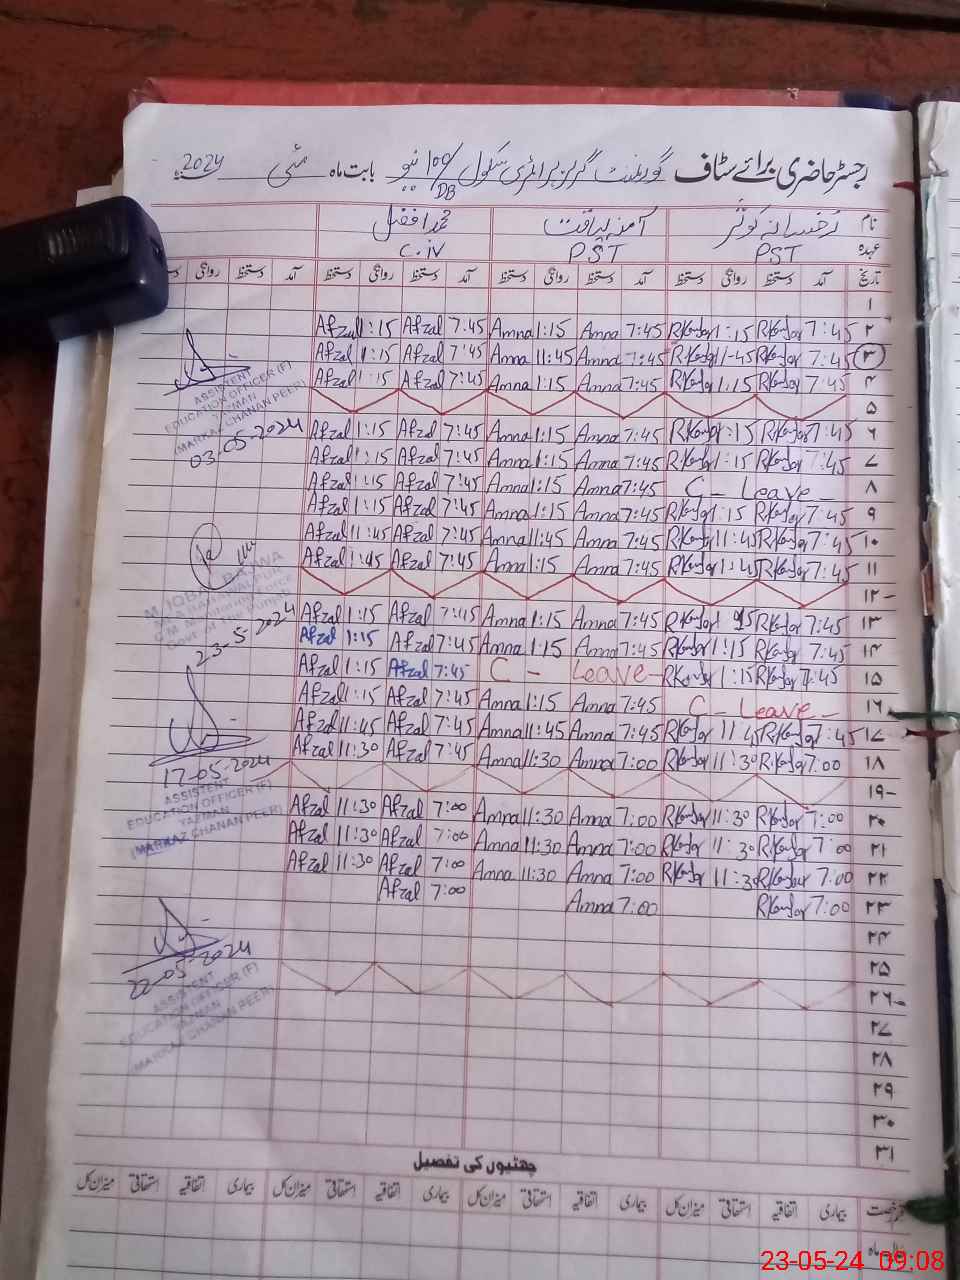 رجسٹر حاضری برائے سٹاف گورنمنٹ گرلز پرائمری سکول 100/DB نیو بابت ماہ مئی 2024
نام رخسانہ کوثر آمنہ لیاقت محمد افضل
عہدہ PST PST C.iv
تاریخ آمد دستخط روانگی دستخط آمد دستخط روانگی دستخط آمد دستخط روانگی دستخط آمد دستخط روانگی
۱
Afzal 1:15 Afzal 7:45 Amna 1:15 Amna 7:45 1:15 7:45 ۲
Afzal 1:15 Afzal 7:45 Amna 11:45 Amna 7:45 1-45 7:45 ۳
Afzal 1:15 Afzal 7:45 Amna 1:15 Amna 7:45 1:15 7:45 ۴
۵
Afzal 1:15 Afzal 7:45 Amna 1:15 Amna 7:45 1:15 7:45 ۶
Afzal 1:15 Afzal 7:45 Amna 1:15 Amna 7:45 1:15 7:45 ۷
Afzal 1:15 Afzal 7:45 Amna 1:15 Amna 7:45 C - Leave - ۸
Afzal 1:15 Afzal 7:45 Amna 1:15 Amna 7:45 1:15 7:45 ۹
Afzal 11:45 Afzal 7:45 Amna 11:45 Amna 7:45 11:45 7:45 ۱۰
Afzal 1:45 Afzal 7:45 Amna 1:15 Amna 7:45 1:45 7:45 ۱۱
۱۲-
Afzal 1:15 Afzal 7:45 Amna 1:15 Amna 7:45 7:45 ۱۳
Afzal 1:15 Afzal 7:45 Amna 1:15 Amna 7:45 1:15 7:45 ۱۴
Afzal 1:15 Afzal 7:45 C - Leave - 1:15 7:45 ۱۵
Afzal 1:15 Afzal 7:45 Amna 1:15 Amna 7:45 C - Leave - ۱۶
Afzal 11:45 Afzal 7:45 Amna 11:45 Amna 7:45 11:45 7:45 ۱۷
Afzal 11:30 Afzal 7:45 Amna 11:30 Amna 7:00 11:30 7:00 ۱۸
۱۹-
Afzal 11:30 Afzal 7:00 Amna 11:30 Amna 7:00 11:30 7:00 ۲۰
Afzal 11:30 Afzal 7:00 Amna 11:30 Amna 7:00 11:30 7:00 ۲۱
Afzal 11:30 Afzal 7:00 Amna 11:30 Amna 7:00 11:30 7:00 ۲۲
Afzal 7:00 Amna 7:00 7:00 ۲۳
۲۴
۲۵
۲۶-
۲۷
۲۸
۲۹
۳۰
۳۱
ASSISTENT
EDUCATION OFFICER (F)
YAZMAN
(MARKAZ CHANAN PEER)
03-05-2024
M. IQBAL BAJWA
BAHAWALPUR
C.M Monitoring Force
Govt of the Punjab
23-5-2024
17-05-2024
ASSISTENT
EDUCATION OFFICER (F)
YAZMAN
(MARKAZ CHANAN PEER)
22-05-2024
ASSISTENT
EDUCATION OFFICER (F)
YAZMAN
(MARKAZ CHANAN PEER)
چھٹیوں کی تفصیل
رخصت بیماری اتفاقیہ استحقاقی میزان کل بیماری اتفاقیہ استحقاقی میزان کل بیماری اتفاقیہ استحقاقی میزان کل بیماری اتفاقیہ استحقاقی میزان کل
ماہ
23-05-24 09:08